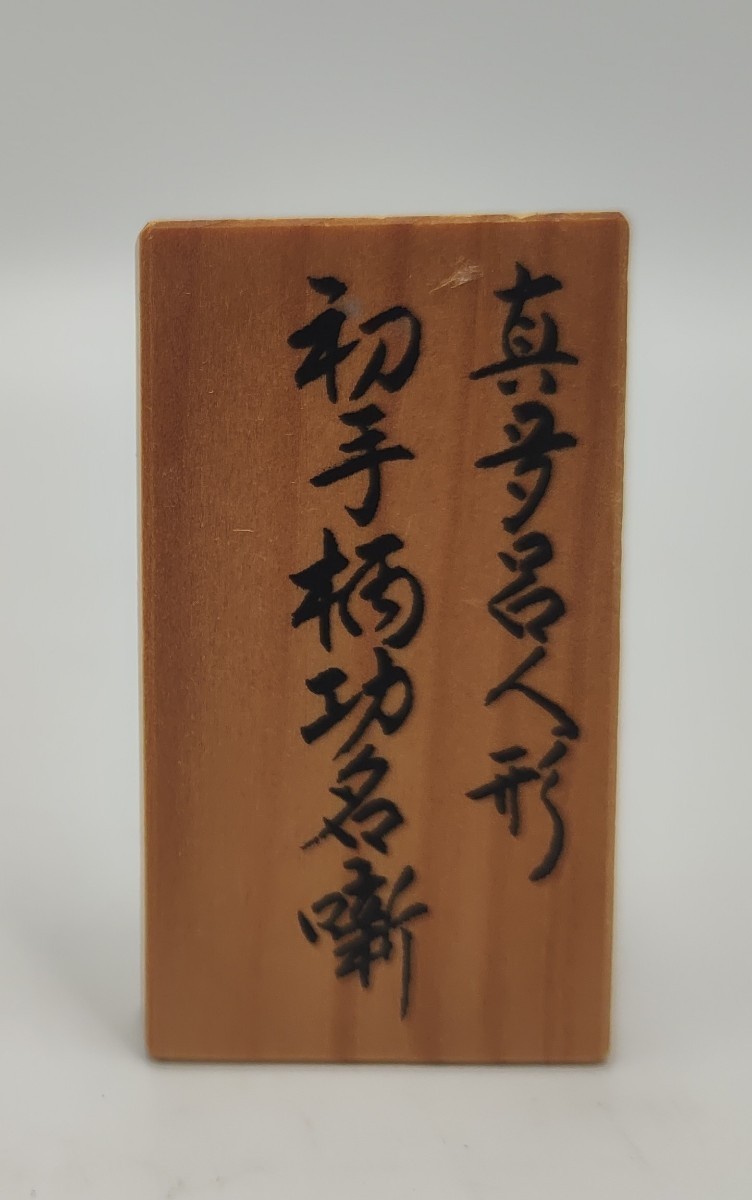 真多呂人形
初手柄功名噺